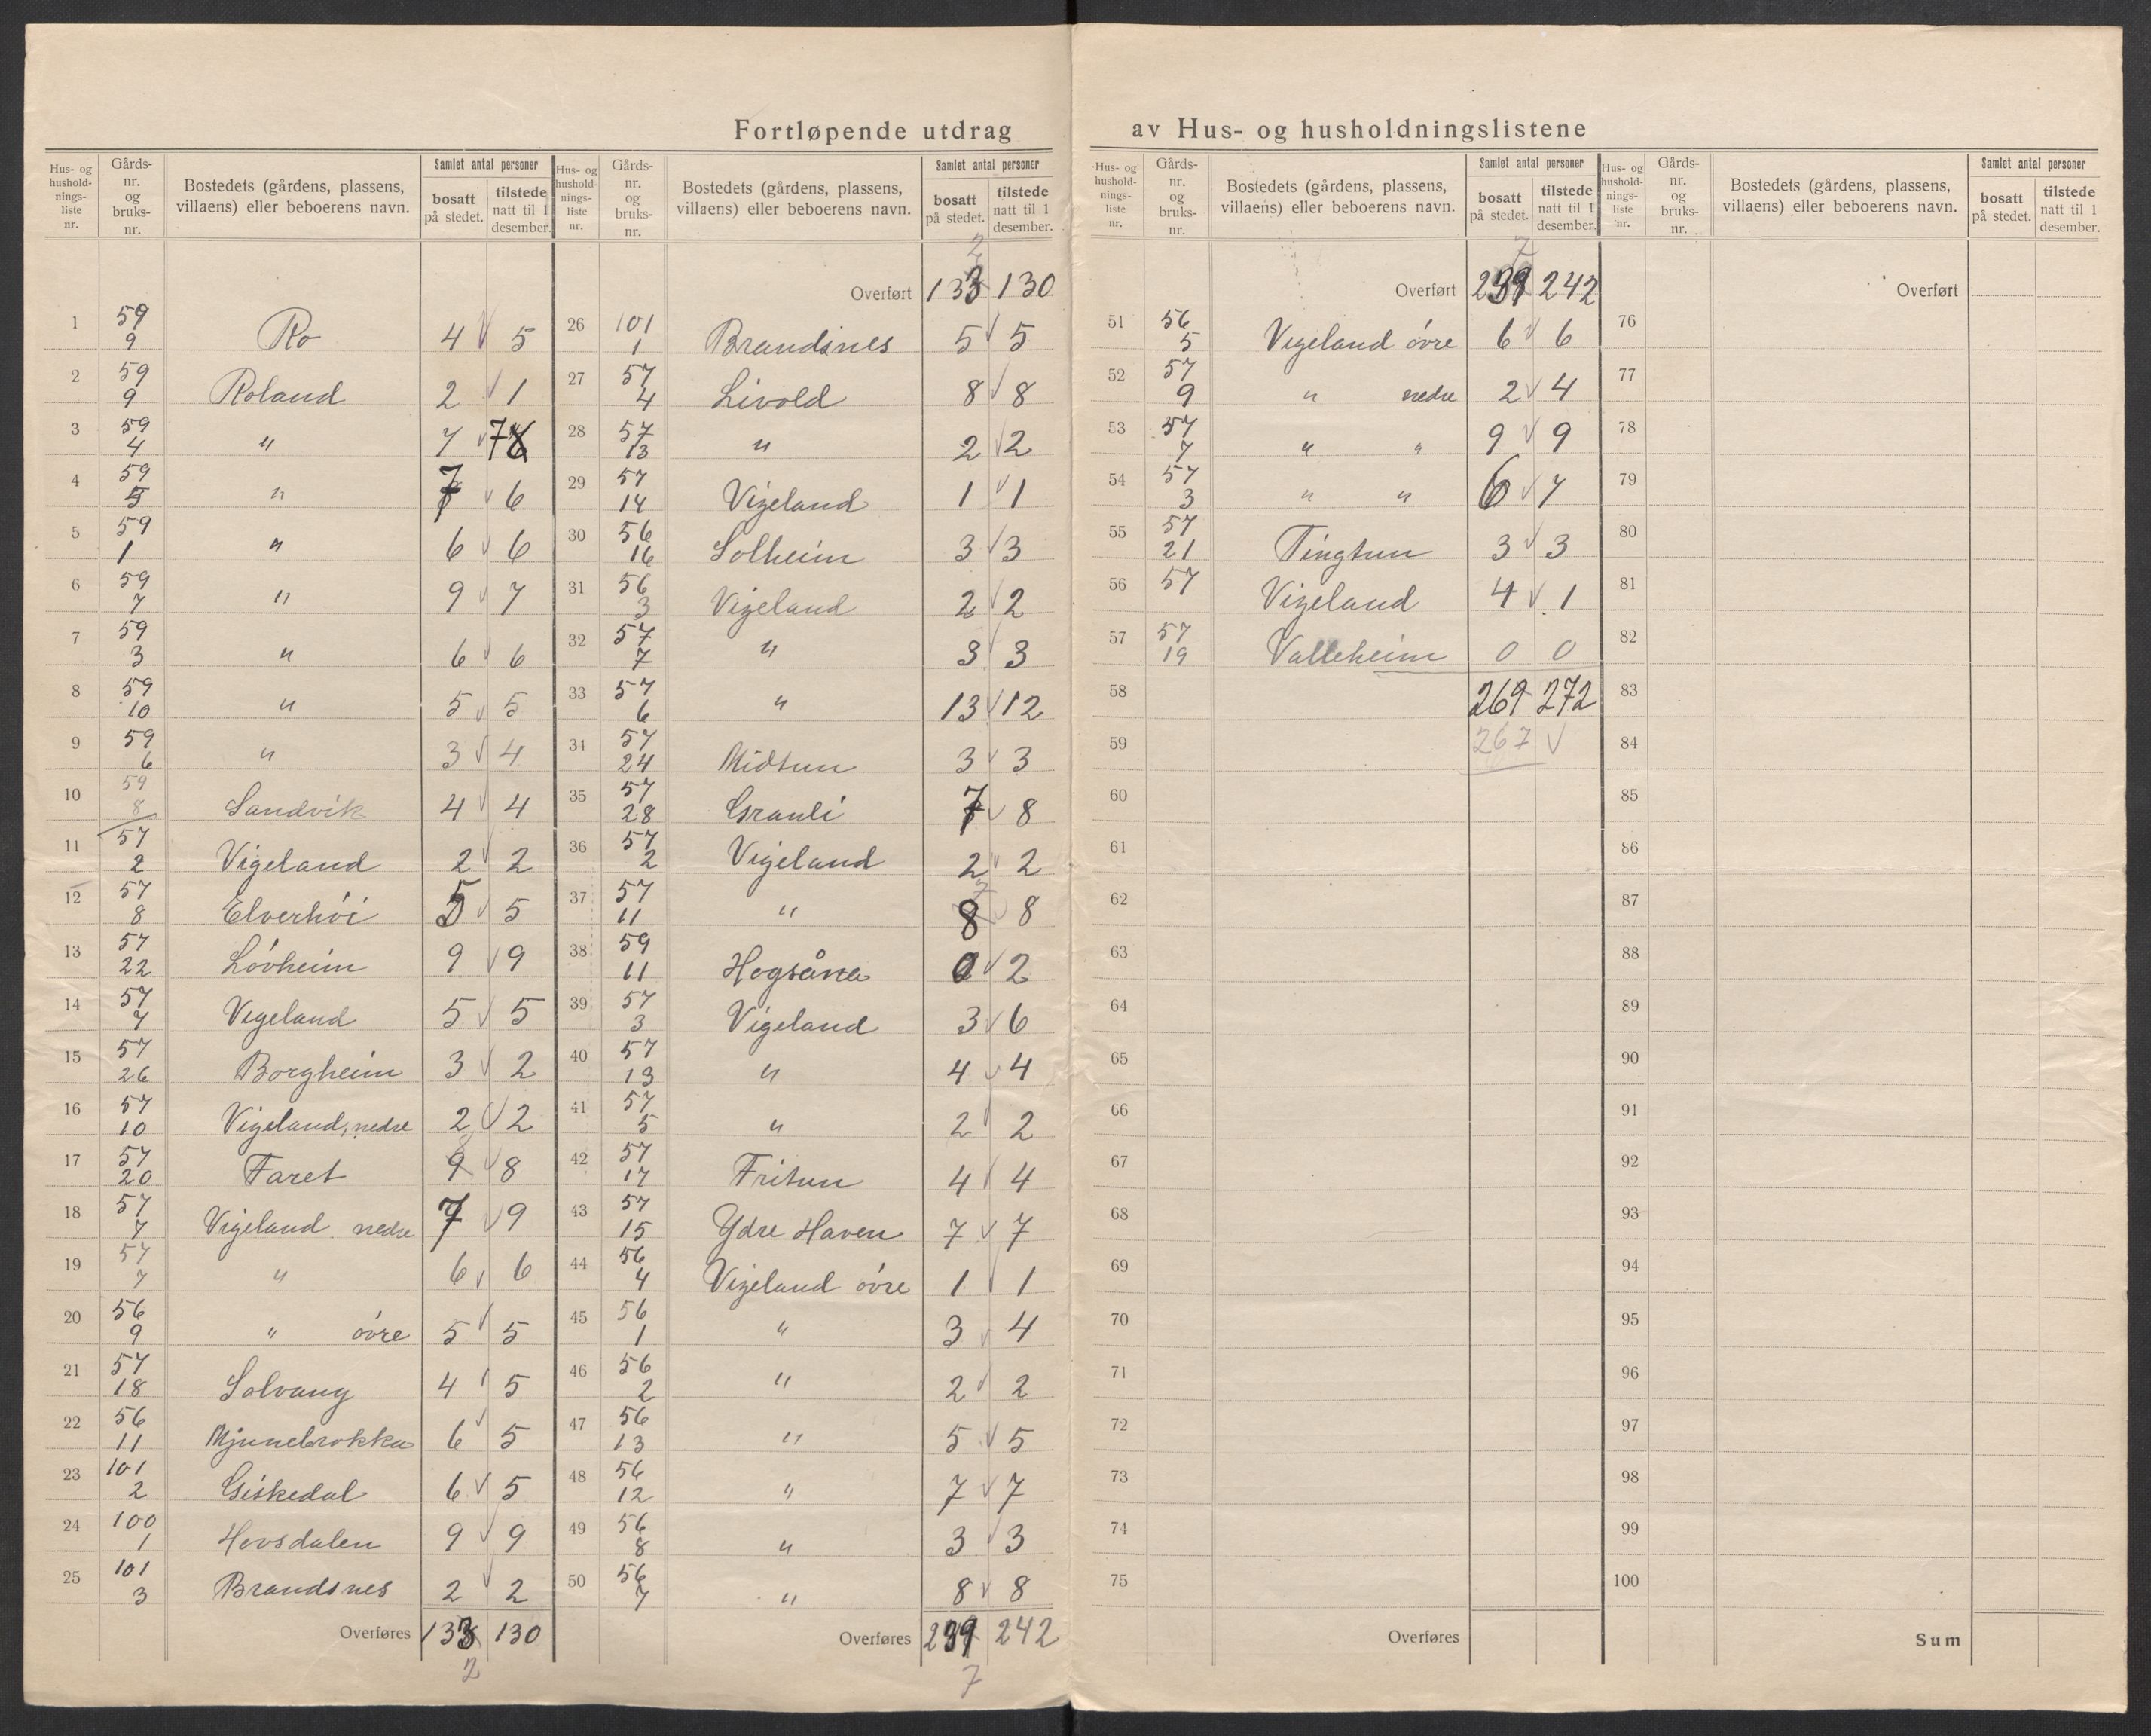 Fortløpende utdrag av Hus- og husholdningslistene
Hus- og hushold-nings-liste nr. | Gårds-nr. og bruks-nr. | Bostedets (gårdens, plassens, villaens) eller beboerens navn. | Samlet antal personer | bosatt på stedet. | tilstede natt til 1 desember.
1 59 9 Ro 4 5
2 59 9 Roland 2 1
3 59 4 " 7 7
4 59 5 " 7 6
5 59 1 " 6 6
6 59 7 " 9 7
7 59 3 " 6 6
8 59 10 " 5 5
9 59 6 " 3 4
10 59 8 Sandvik 4 4
11 57 2 Vigeland 2 2
12 57 8 Elverhöi 5 5
13 57 22 Lövheim 9 9
14 57 7 Vegeland 5 5
15 57 26 Borgheim 3 2
16 57 10 Vigeland, nedre 2 2
17 57 20 Faret 9 8 8
18 57 7 Vigeland nedre 7 9
19 57 7 " 6 6
20 56 9 " övre 5 5
21 57 18 Solvang 4 5
22 56 11 Mjunebrokka 6 5
23 101 2 Giskedal 6 5
24 100 1 Hovsdalen 9 9
25 101 3 Brandsnes 2 2
Overføres 133 130
2
Hus- og hushold-nings-liste nr. | Gårds-nr. og bruks-nr. | Bostedets (gårdens, plassens, villaens) eller beboerens navn. | Samlet antal personer | bosatt på stedet. | tilstede natt til 1 desember.
2
Overført 133 130
26 101 1 Brandsnes 5 5
27 57 4 Livold 8 8
28 57 13 " 2 2
29 57 14 Vigeland 1 1
30 56 16 Solheim 3 3
31 56 3 Vigeland 2 2
32 57 7 " 3 3
33 57 6 " 13 12
34 57 24 Midtun 3 3
35 57 28 Granli 7 8
36 57 2 Vigeland 2 2
37 57 11 " 7 8 8
38 59 11 Hogsåna 0 2
39 57 3 Vigeland 3 6
40 57 13 " 4 4
41 57 5 " 2 2
42 57 17 Fritun 4 4
43 57 15 Ydre Haven 7 7
44 56 4 Vigeland övre 1 1
45 56 1 " 3 4
46 56 2 " 2 2
47 56 13 " 5 5
48 56 12 " 7 7
49 56 8 " 3 3
50 56 7 " 8 8
Overføres 239 242
7
Hus- og hushold-nings-liste nr. | Gårds-nr. og bruks-nr. | Bostedets (gårdens, plassens, villaens) eller beboerens navn. | Samlet antal personer | bosatt på stedet. | tilstede natt til 1 desember.
7
Overført 239 242
51 56 5 Vegeland övre 6 6
52 57 9 " nedre 2 4
53 57 7 " " 9 9
54 57 3 " " 6 7
55 57 21 Tingtun 3 3
56 57 Vigeland 4 1
57 57 19 Valleheim 0 0
58 269 272
59 267
60
61
62
63
64
65
66
67
68
69
70
71
72
73
74
75
Overføres
Hus- og hushold-nings-liste nr. | Gårds-nr. og bruks-nr. | Bostedets (gårdens, plassens, villaens) eller beboerens navn. | Samlet antal personer | bosatt på stedet. | tilstede natt til 1 desember.
Overført
76
77
78
79
80
81
82
83
84
85
86
87
88
89
90
91
92
93
94
95
96
97
98
99
100
Sum